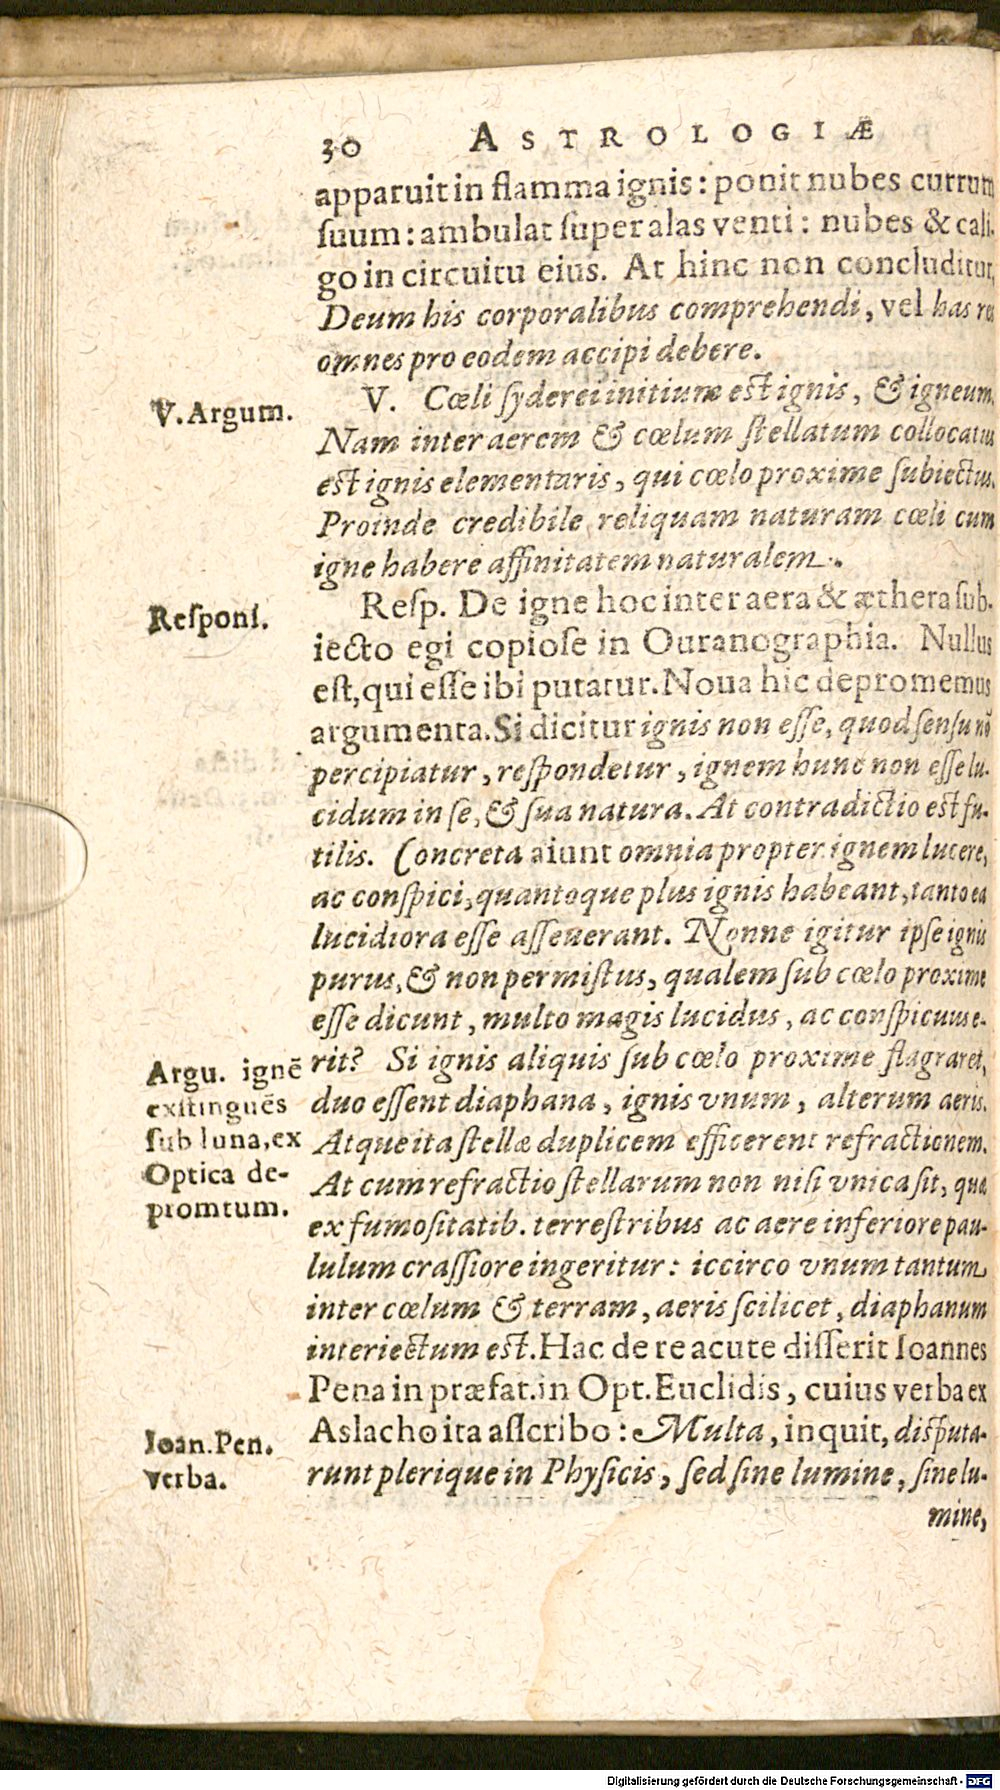 30 ASTROLOGIÆ
apparuit in flamma ignis: ponit nubes currum
ſuum: ambulat ſuper alas venti: nubes & cali-
go in circuitu eius. At hinc non concluditur,
Deum his corporalibus comprehendi, vel has res
omnes pro eodem accipi debere.
V. Argum.
V. Cœli ſyderei initium eſt ignis, & igneum.
Nam inter aerem & cœlum ſtellatum collocatus
eſt ignis elementaris, qui cœlo proxime ſubiectus.
Proinde credibile reliquam naturam cœli cum
igne habere affinitatem naturalem.
Reſponſ.
Reſp. De igne hoc inter aera & æthera ſub-
iecto egi copioſe in Ouranographia. Nullus
eſt, qui eſſe ibi putatur. Noua hic depromemus
argumenta. Si dicitur ignis non eſſe, quod ſenſu nō
percipiatur, reſpondetur, ignem hunc non eſſe lu-
cidum in ſe, & ſua natura. At contradictio eſt fu-
tilis. Concreta aiunt omnia propter ignem lucere,
ac conſpici, quantoque plus ignis habeant, tanto ea
lucidiora eſſe aſſeuerant. Nonne igitur ipſe ignis
purus, & non permiſtus, qualem ſub cœlo proxime
eſſe dicunt, multo magis lucidus, ac conſpicuus e-
rit? Si ignis aliquis ſub cœlo proxime flagraret,
Argu. ignē
exſtinguēs
ſub luna, ex
Optica de-
promtum.
duo eſſent diaphana, ignis vnum, alterum aeris.
Atque ita ſtellæ duplicem efficerent refractionem.
At cum refractio ſtellarum non niſi vnica ſit, quæ
ex fumoſitatib. terreſtribus ac aere inferiore pau-
lulum craſſiore ingeritur: iccirco vnum tantum
inter cœlum & terram, aeris ſcilicet, diaphanum
interiectum eſt. Hac de re acute diſſerit Ioannes
Pena in præfat. in Opt. Euclidis, cuius verba ex
Aslacho ita aſſcribo: Multa, inquit, diſputa-
Ioan. Pen.
verba.
runt plerique in Phyſicis, ſed ſine lumine, ſine lu-
mine,
Digitalisierung gefördert durch die Deutsche Forschungsgemeinschaft - DFG